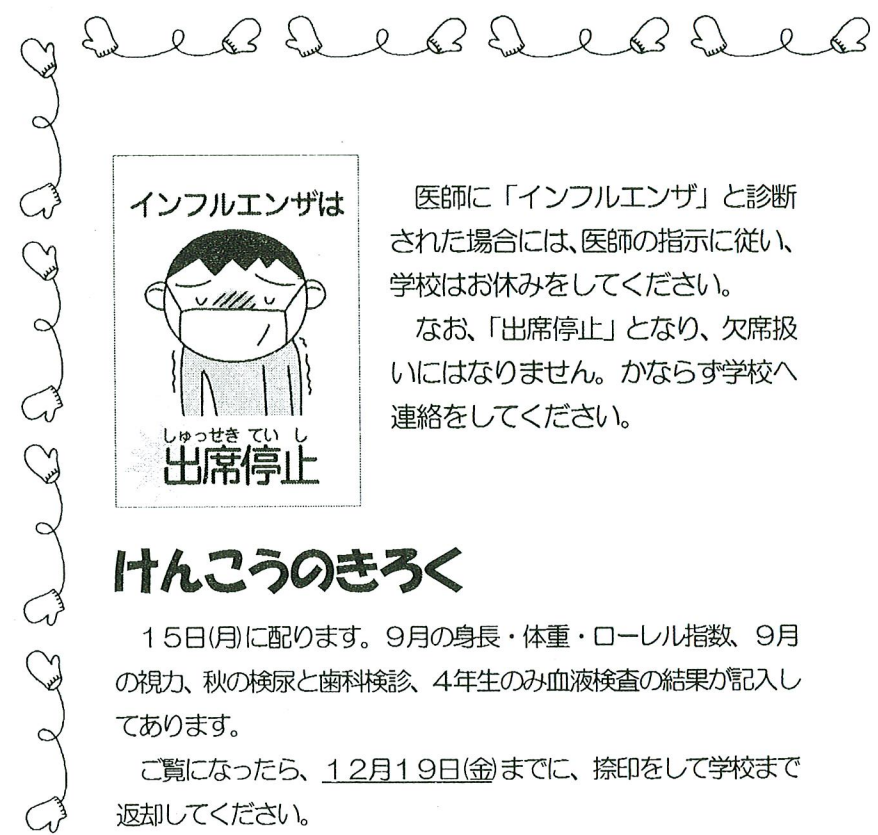 インフルエンザは
しゅっせき てい し
出席停止
医師に「インフルエンザ」と診断
された場合には、医師の指示に従い、
学校はお休みをしてください。
なお、「出席停止」となり、欠席扱
いにはなりません。かならず学校へ
連絡をしてください。
けんこうのきろく
１５日(月)に配ります。９月の身長・体重・ローレル指数、９月
の視力、秋の検尿と歯科検診、４年生のみ血液検査の結果が記入し
てあります。
ご覧になったら、１２月１９日(金)までに、捺印をして学校まで
返却してください。